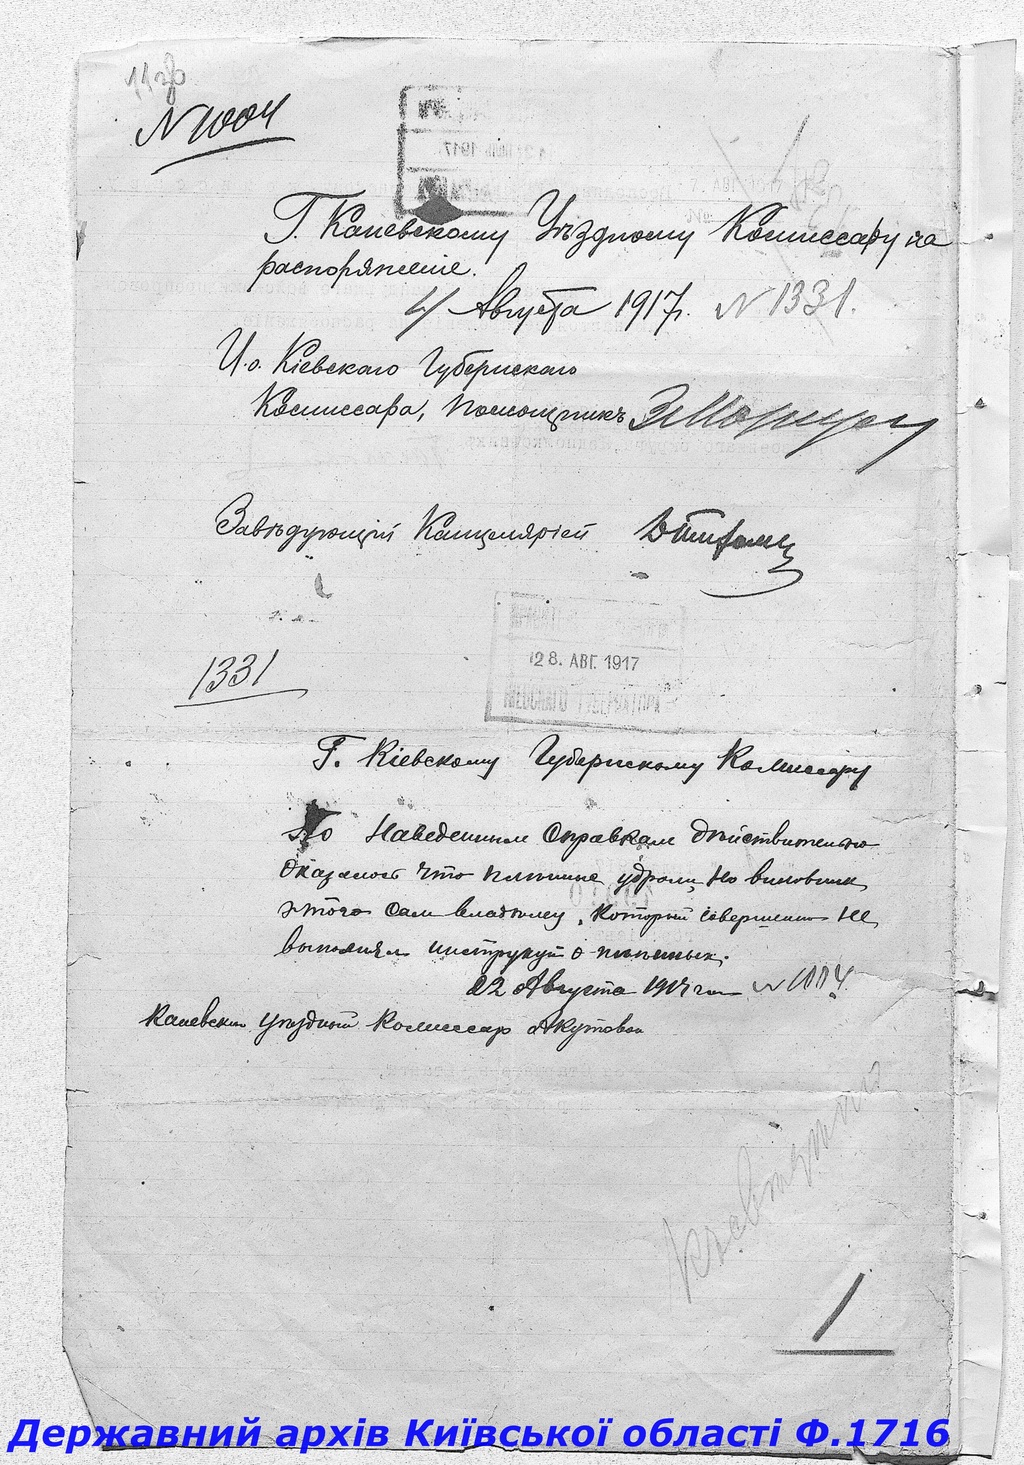 N 1004
Г. Каневскому Уѣздному Комиссару на
распоряженіе.
4 Августа 1917 г. N 1331.
И.о. Кіевскаго Губернскаго
Комиссара, Помощникъ
Завѣдующій Канцеляріей
1331
28. АВГ. 1917
КІЕВСКАГО ГУБЕРНАТОРА
Г. Кіевскому Губернскому Комиссару
По Наведенным Справкам дѣйствительно
оказалось что плѣнные удрали, но виновник
этого сам владѣлец, который совершенно не
выполнял инструкций о плѣнных.
22 Августа 1917 года N 1004
Каневский уѣздный Комиссар
1
Державний архів Київської області Ф.1716